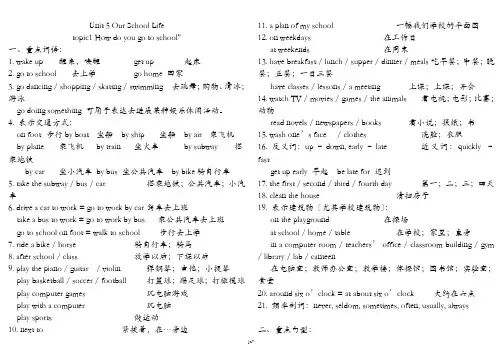 Unit 5 Our School Life
topic1 How do you go to school?
一、重点词语:
1. wake up 醒来，唤醒 get up 起床
2. go to school 去上学 go home 回家
3. go dancing / shopping / skating / swimming 去跳舞；购物、滑冰；
游泳
go doing something 可用于表达去进展某种娱乐休闲活动。
4. 表示交通方式:
on foot 步行 by boat 坐船 by ship 坐船 by air 乘飞机
by plane 乘飞机 by train 坐火车 by subway 搭
乘地铁
by car 坐小汽车 by bus 坐公共汽车 by bike 骑自行车
5. take the subway / bus / car 搭乘地铁；公共汽车；小汽
车
6. drive a car to work = go to work by car 驾车去上班
take a bus to work = go to work by bus 乘公共汽车去上班
go to school on foot = walk to school 步行去上学
7. ride a bike / horse 骑自行车；骑马
8. after school / class 放学以后；下课以后
9. play the piano / guitar / violin 弹钢琴；吉他；小提琴
play basketball / soccer / football 打篮球；踢足球；打橄榄球
play computer games 玩电脑游戏
play with a computer 玩电脑
play sports 做运动
10. next to 紧挨着，在…旁边
11. a plan of my school 一幅我们学校的平面图
12. on weekdays 在工作日
at weekends 在周末
13. have breakfast / lunch / supper / dinner / meals 吃早餐；中餐；晚
餐；正餐；一日三餐
have classes / lessons / a meeting 上课；上课；开会
14. watch TV / movies / games / the animals 看电视；电影；比赛；
动物
read novels / newspapers / books 看小说；报纸；书
15. wash one’s face / clothes 洗脸；衣服
16. 反义词：up – down, early – late 近义词：quickly –
fast
get up early 早起 be late for 迟到
17. the first / second / third / fourth day 第一；二；三；四天
18. clean the house 清扫房子
19. 表示建筑物〔尤其学校建筑物〕:
on the playground 在操场
at school / home / table 在学校；家里；桌旁
in a computer room / teachers’ office / classroom building / gym
/ library / lab / canteen
在电脑室；教师办公室；教学楼；体操馆；图书馆；实验室；
食堂
20. around six o’clock = at about six o’clock 大约在六点
21. 频率副词：never, seldom, sometimes, often, usually, always
二、重点句型: